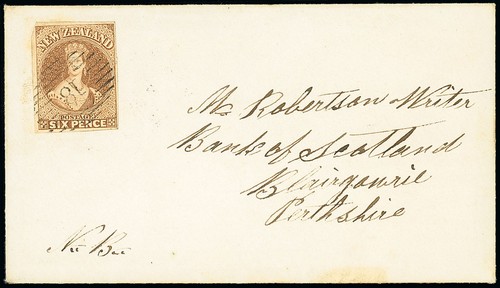 NEW ZEALAND
POSTAGE
SIX PENCE
Mr Robertson Writer
Bank of Scotland
Blairgowrie
Perthshire